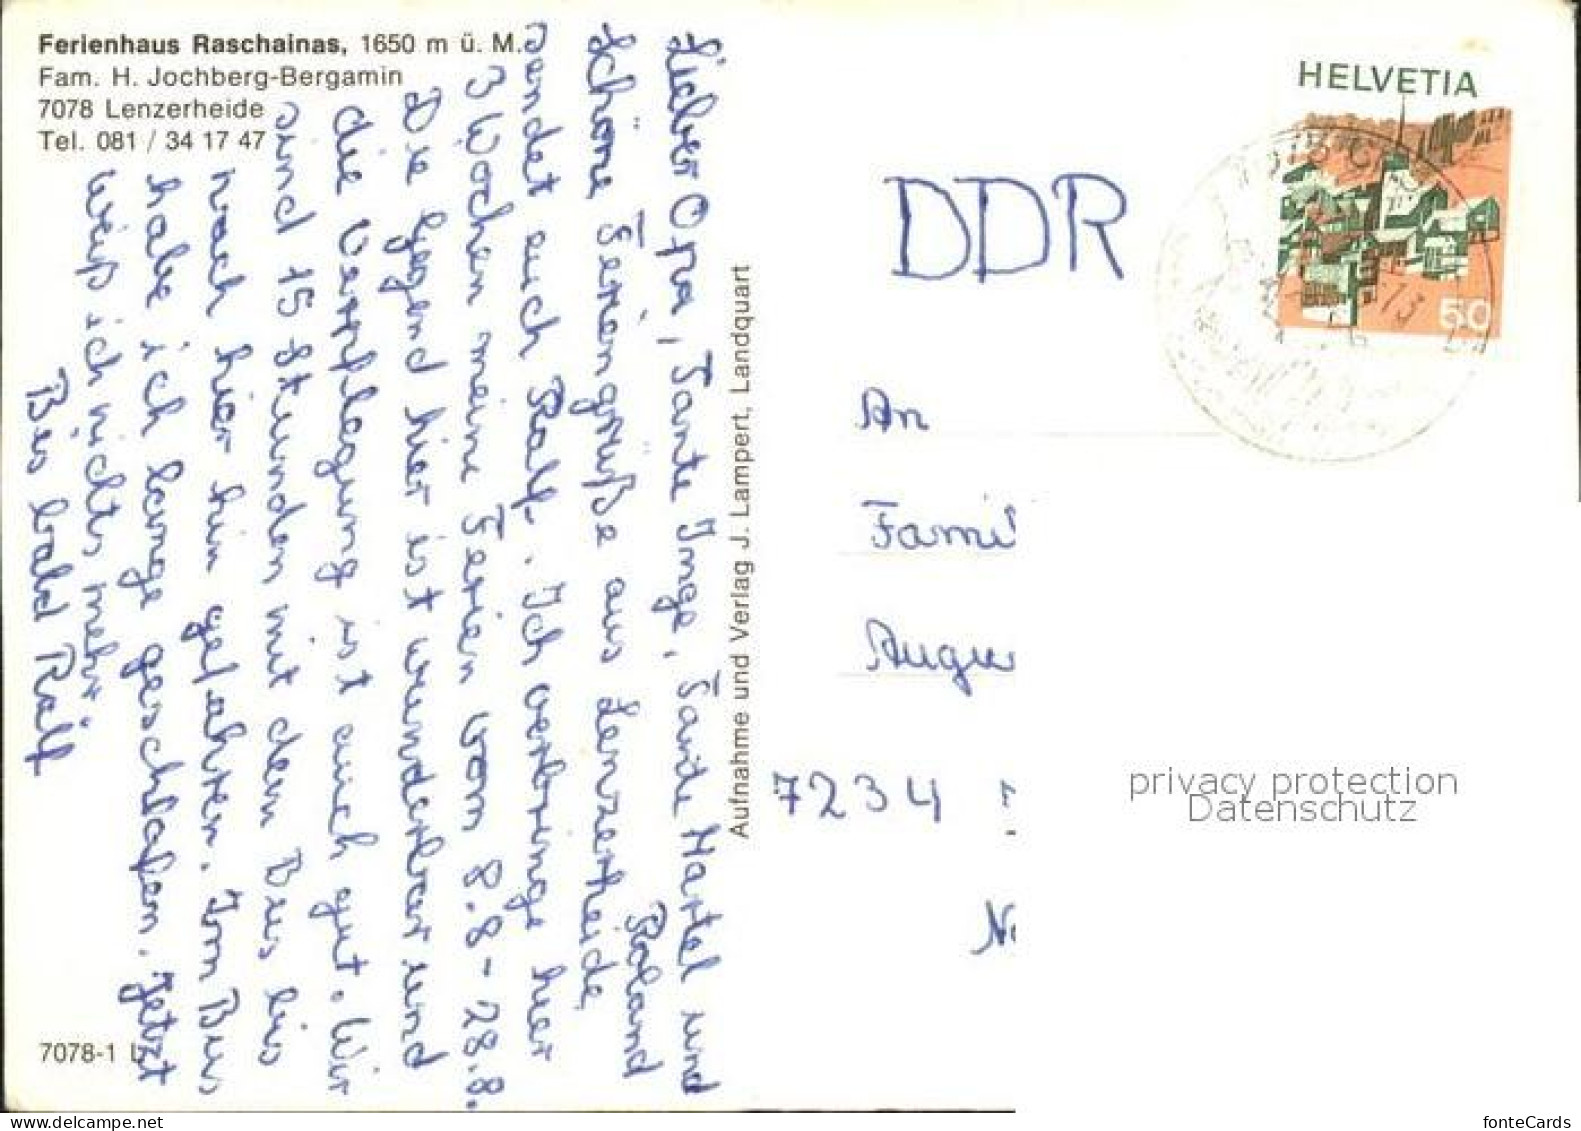 Ferienhaus Raschainas, 1650 m ü. M.
Fam. H. Jochberg-Bergamin
7078 Lenzerheide
Tel. 081 / 34 17 47
Lieber Opa, Tante Inge, Tante Martel und
Roland
Schöne Feriengrüße aus Lenzerheide
sendet euch Ralf. Ich verbringe hier
3 Wochen meine Ferien vom 8.8-28.8.
Die Gegend hier ist wunderbar und
die Verpflegung ist auch gut. Wir
sind 15 Stunden mit dem Bus bis
nach hier hin gefahren. Im Bus
habe ich lange geschlafen. Jetzt
weiß ich nichts mehr.
Bis bald Ralf
7078-1 L
Aufnahme und Verlag J. Lampert, Landquart
HELVETIA
50
DDR
An
Famil
Augu
7234
N
privacy protection
Datenschutz
delcampe.net
fonteCards